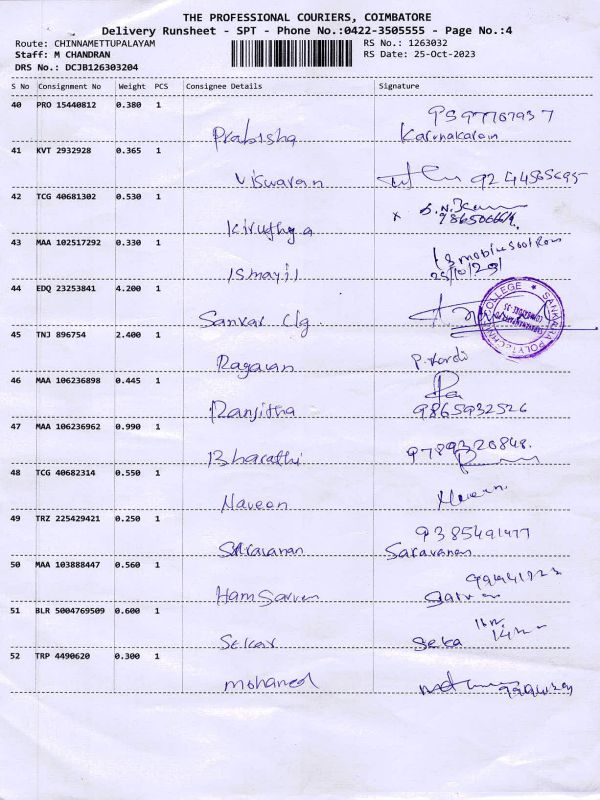 THE PROFESSIONAL COURIERS, COIMBATORE
Delivery Runsheet - SPT - Phone No.:0422-3505555 - Page No.:4
Route: CHINNAMETTUPALAYAM
Staff: M CHANDRAN
DRS No.: DCJB126303204
RS No.: 1263032
RS Date: 25-Oct-2023
S No Consignment No Weight PCS Consignee Details Signature
40 PRO 15440812 0.380 1
Prabisha Karunakaran
41 KVT 2932928 0.365 1
Viswaran
42 TCG 40681302 0.530 1
Kiruthga
43 MAA 102517292 0.330 1
Ismayil
44 EDQ 23253841 4.200 1
Sankar Clg
SANKARA POLYTECHNIC COLLEGE
45 TNJ 896754 2.400 1
Ragavan
46 MAA 106236898 0.445 1
Ranjitha 9865932526
47 MAA 106236962 0.990 1
Bharathi 9789320848.
48 TCG 40682314 0.550 1
Naveen Naveen.
49 TRZ 225429421 0.250 1
Saravanan 9385491477
Saravanan
50 MAA 103888447 0.560 1
51 BLR 5004769509 0.600 1
Sekar Seka
52 TRP 4490620 0.300 1
mohamed